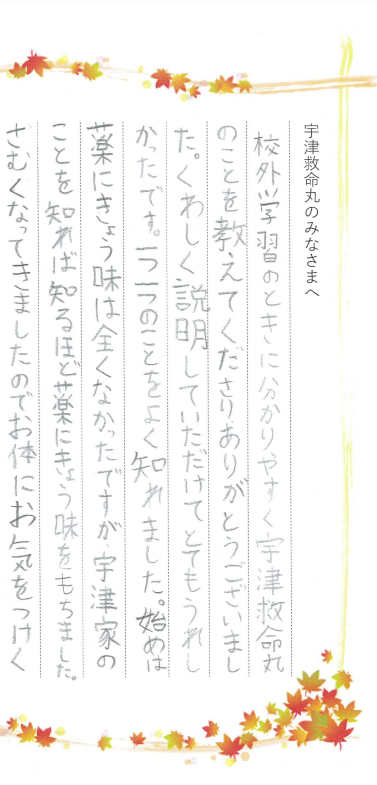 宇津救命丸のみなさまへ
校外学習のときに分かりやすく宇津救命丸
のことを教えてくださりありがとうございまし
た。くわしく説明していただけてとてもうれし
かったです。一つ一つのことをよく知れました。始めは
薬にきょう味は全くなかったですが、宇津家の
ことを知れば知るほど薬にきょう味をもちました。
さむくなってきましたのでお体にお気をつけく